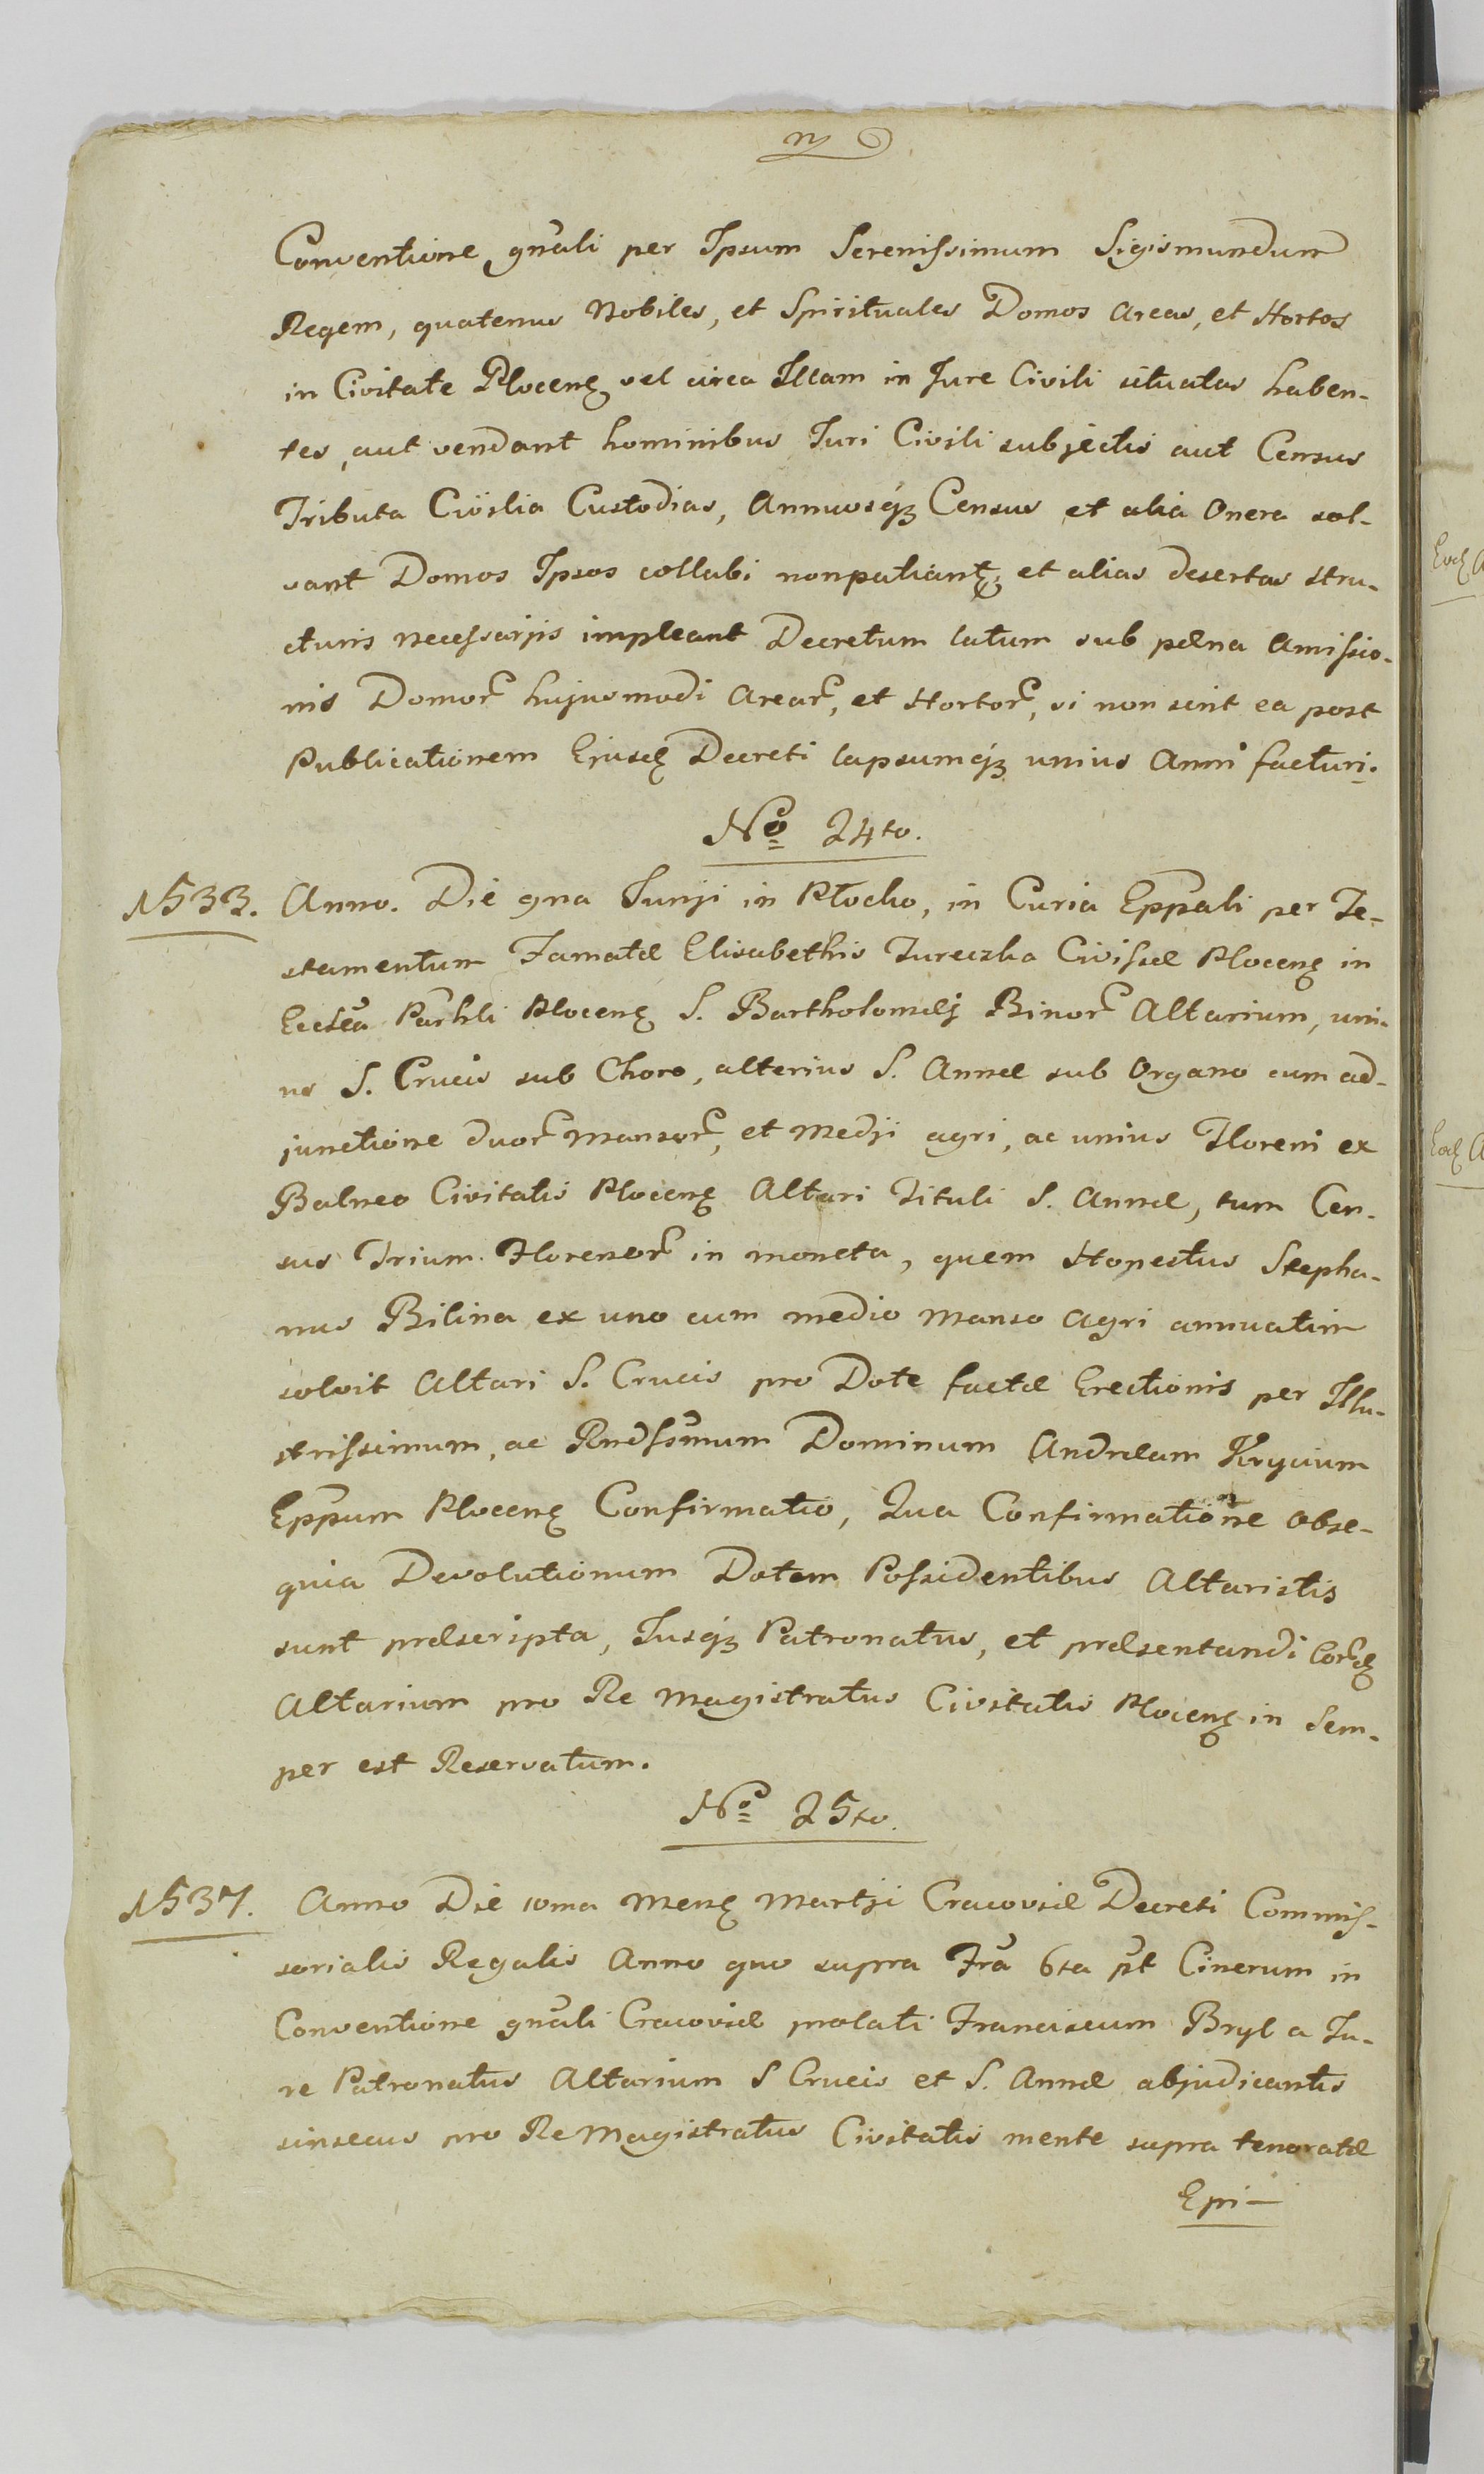 Conventione gnali per Ipsum Serenissimum Sigismundum
Regem, quatenus Nobiles, et Spirituales Domos Areas, et Hortos
in Civitate Plocenę vel circa Illam in Jure Civili situatas haben-
tes, aut vendant hominibus Juri Civili subjectis aut Census
Tributa Civilia Custodias, Annuosqꝫ Census et alia Onera sol-
vant Domos Ipsos collabi non patiantꝫ, et alias desertas stru-
cturis necessarijs impleant Decretum latum sub pæna Amissio-
nis Domor hujusmodi Arear, et Hortor, si non sint ea post
Publicationem Ejusdę Decreti lapsumqꝫ unius Anni facturi.
No 24to.
1533. Anno. Die 9na Junji in Płocko, in Curia Eppali per Te-
stamentum Famatæ Elisabethis Jureczka Civissæ Plocenę in
Ecclea Parhli Plocenę S. Bartholomæj Binor Altarium, uni-
us S. Crucis sub Choro, alterius S. Annæ sub Organo cum ad-
junctione duor Mansor, et Medji agri, ac unius Floreni ex
Balneo Civitatis Plocenę Altari Tituli S. Annæ, tum Cen-
sus Trium Florenor in moneta, quem Honestus Stepha-
nus Bilina ex uno cum medio Manso Agri annuatim
solvit Altari S. Crucis pro Dote factæ Erectionis per Illu-
strissimum, ac Rndssmum Dominum Andræam Krycium
Eppum Plocenę Confirmatio, Qua Confirmatione obse-
quia Devolutionum Dotem Possidentibus Altaristis
sunt præscripta, Jusqꝫ Patronatus, et præsentandi Cordę
Altarium pro Re Magistratus Civitatis Plocenę in Sem-
per est Reservatum.
No 25to.
1537. Anno Die 10ma Mensę Martji Cracoviæ Decreti Commis-
sorialis Regalis Anno quo supra Fra 6ta pt Cinerum in
Conventione gnali Cracoviæ prolati Franciscum Bryl a Ju-
re Patronatus Altarium S Crucis et S. Annæ abjudicantis
sinsecus pro Re Magistratus Civitatis mente supra tenoratæ
Epi-